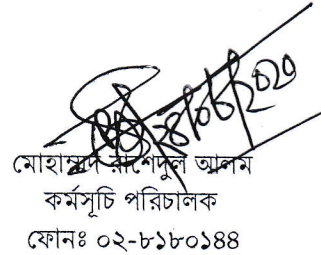 ২৪/০৬/২০২০
মোহাম্মদ রাশেদুল আলম
কর্মসূচি পরিচালক
ফোনঃ ০২-৮১৮০১৪৪